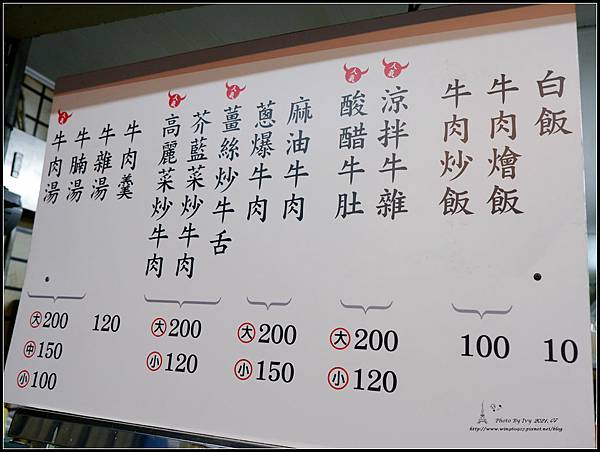 白飯
10
牛肉燴飯
牛肉炒飯
100
涼拌牛雜
酸醋牛肚
大200
小120
麻油牛肉
蔥爆牛肉
大200
小150
薑絲炒牛舌
芥藍菜炒牛肉
高麗菜炒牛肉
大200
小120
牛肉羹
120
牛雜湯
牛腩湯
牛肉湯
大200
中150
小100
Photo By Ivy 2021.07